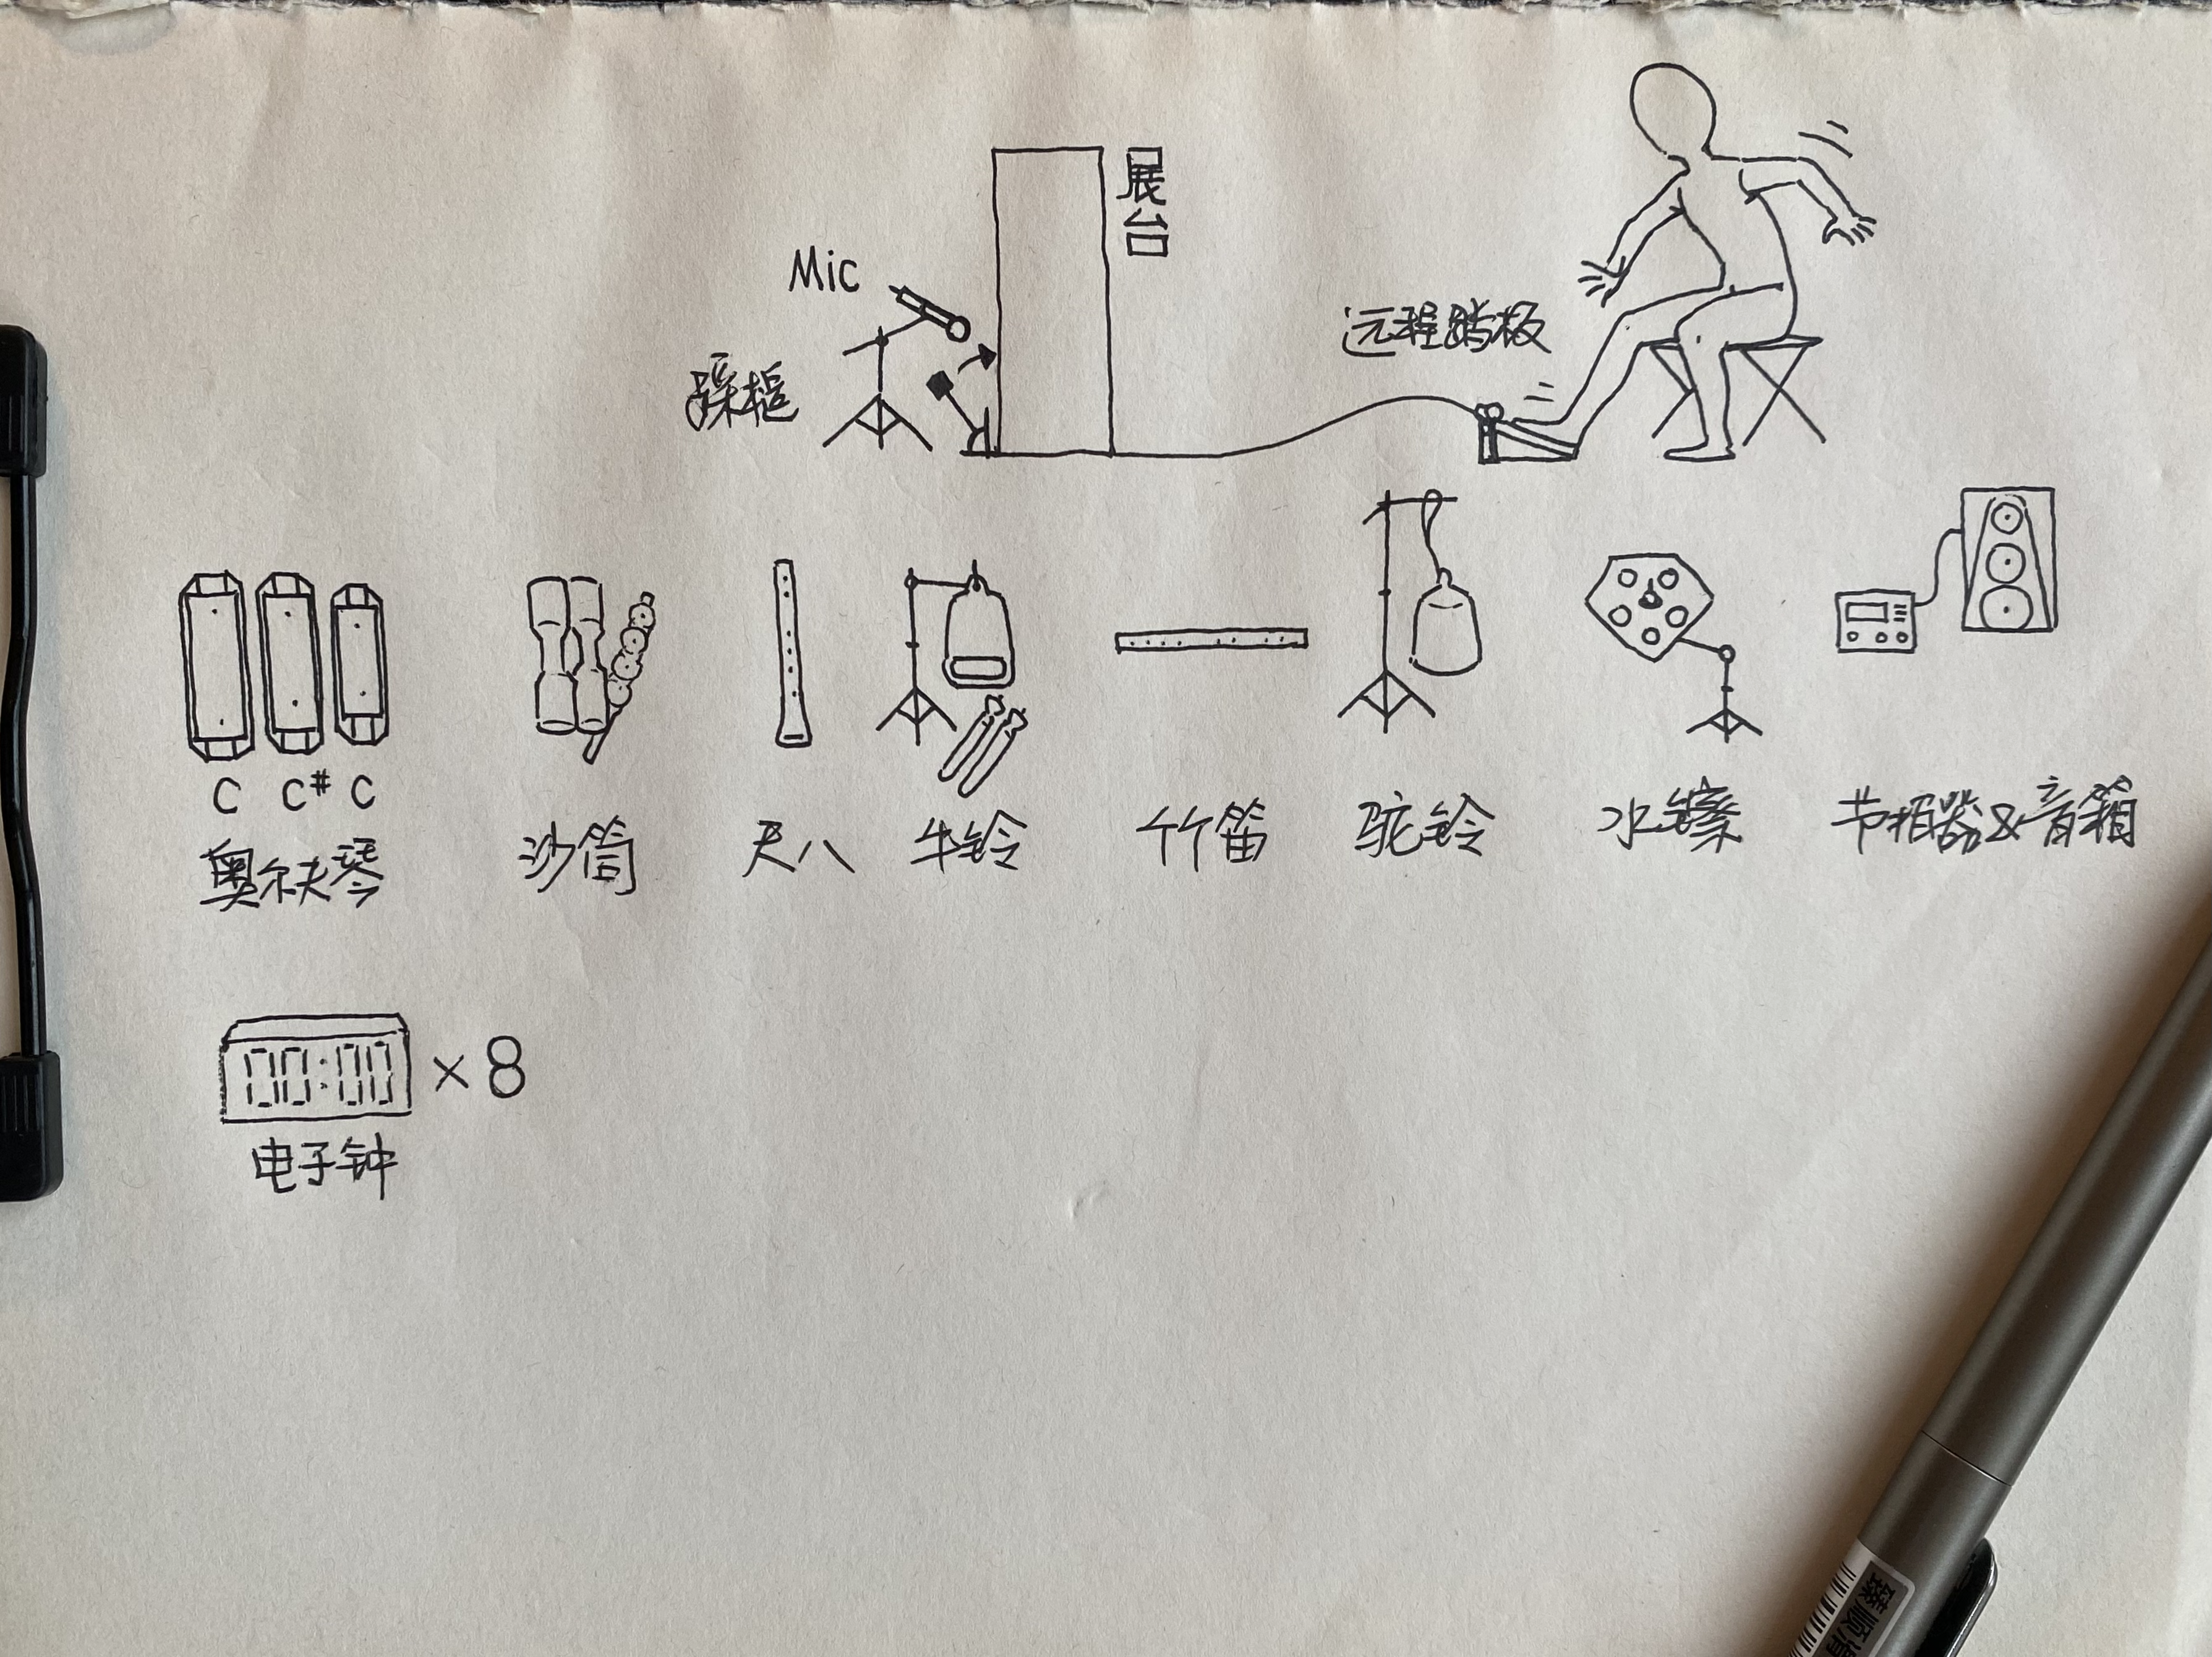 展台
Mic
远程踏板
踩槌
C C# C
奥尔夫琴
沙筒
尺八
牛铃
竹笛
驼铃
水镲
节拍器&音箱
00:00 ×8
电子钟